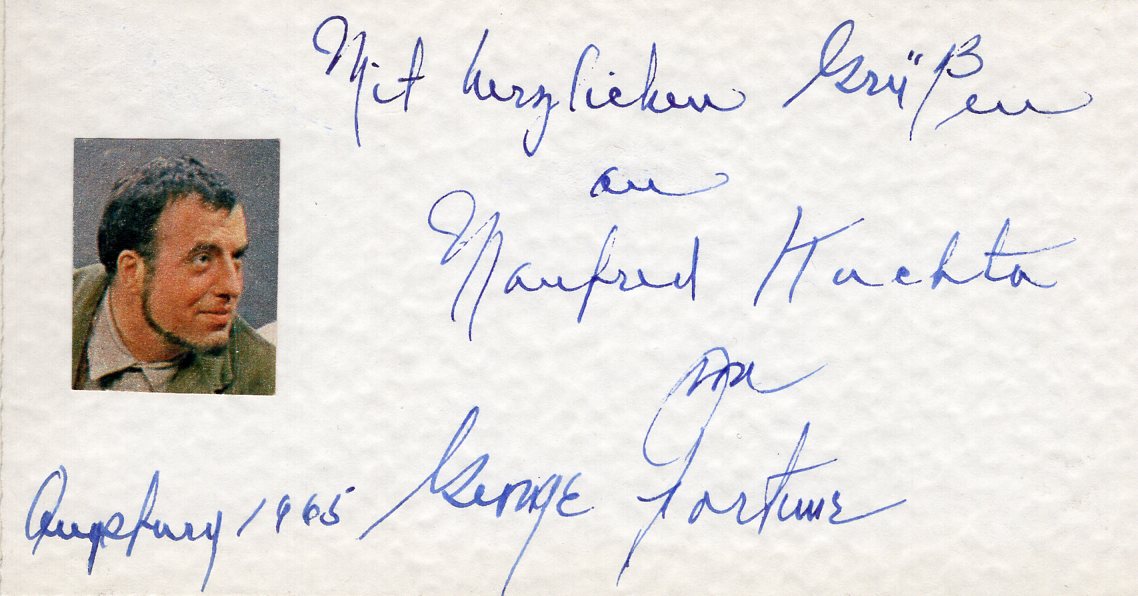 Mit herzlichen Grüßen
an
Manfred Huchta
von
George Fortune
Augsburg 1965